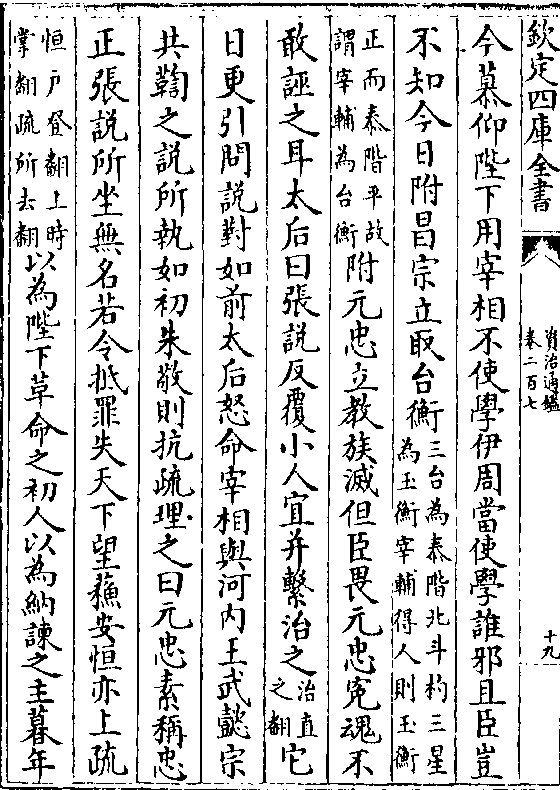 欽定四庫全書
資治通鑑
卷二百七
十九
今慕仰陛下用宰相不使學伊周當使學誰邪且臣豈
不知今日附昌宗立取台衡三台為泰階北斗杓三星
為玉衡宰輔得人則玉衡
正而泰階平故
謂宰輔為台衡附元忠立教族滅但臣畏元忠寃魂不
敢誣之耳太后曰張說反覆小人宜并繫治之治直
之翻它
日更引問說對如前太后怒命宰相與河内王武懿宗
共鞫之說所執如初朱敬則抗疏理之曰元忠素稱忠
正張說所坐無名若令抵罪失天下望蘓安恒亦上疏
恒户登翻上時
掌翻疏所去翻以為陛下革命之初人以為納諫之主暮年